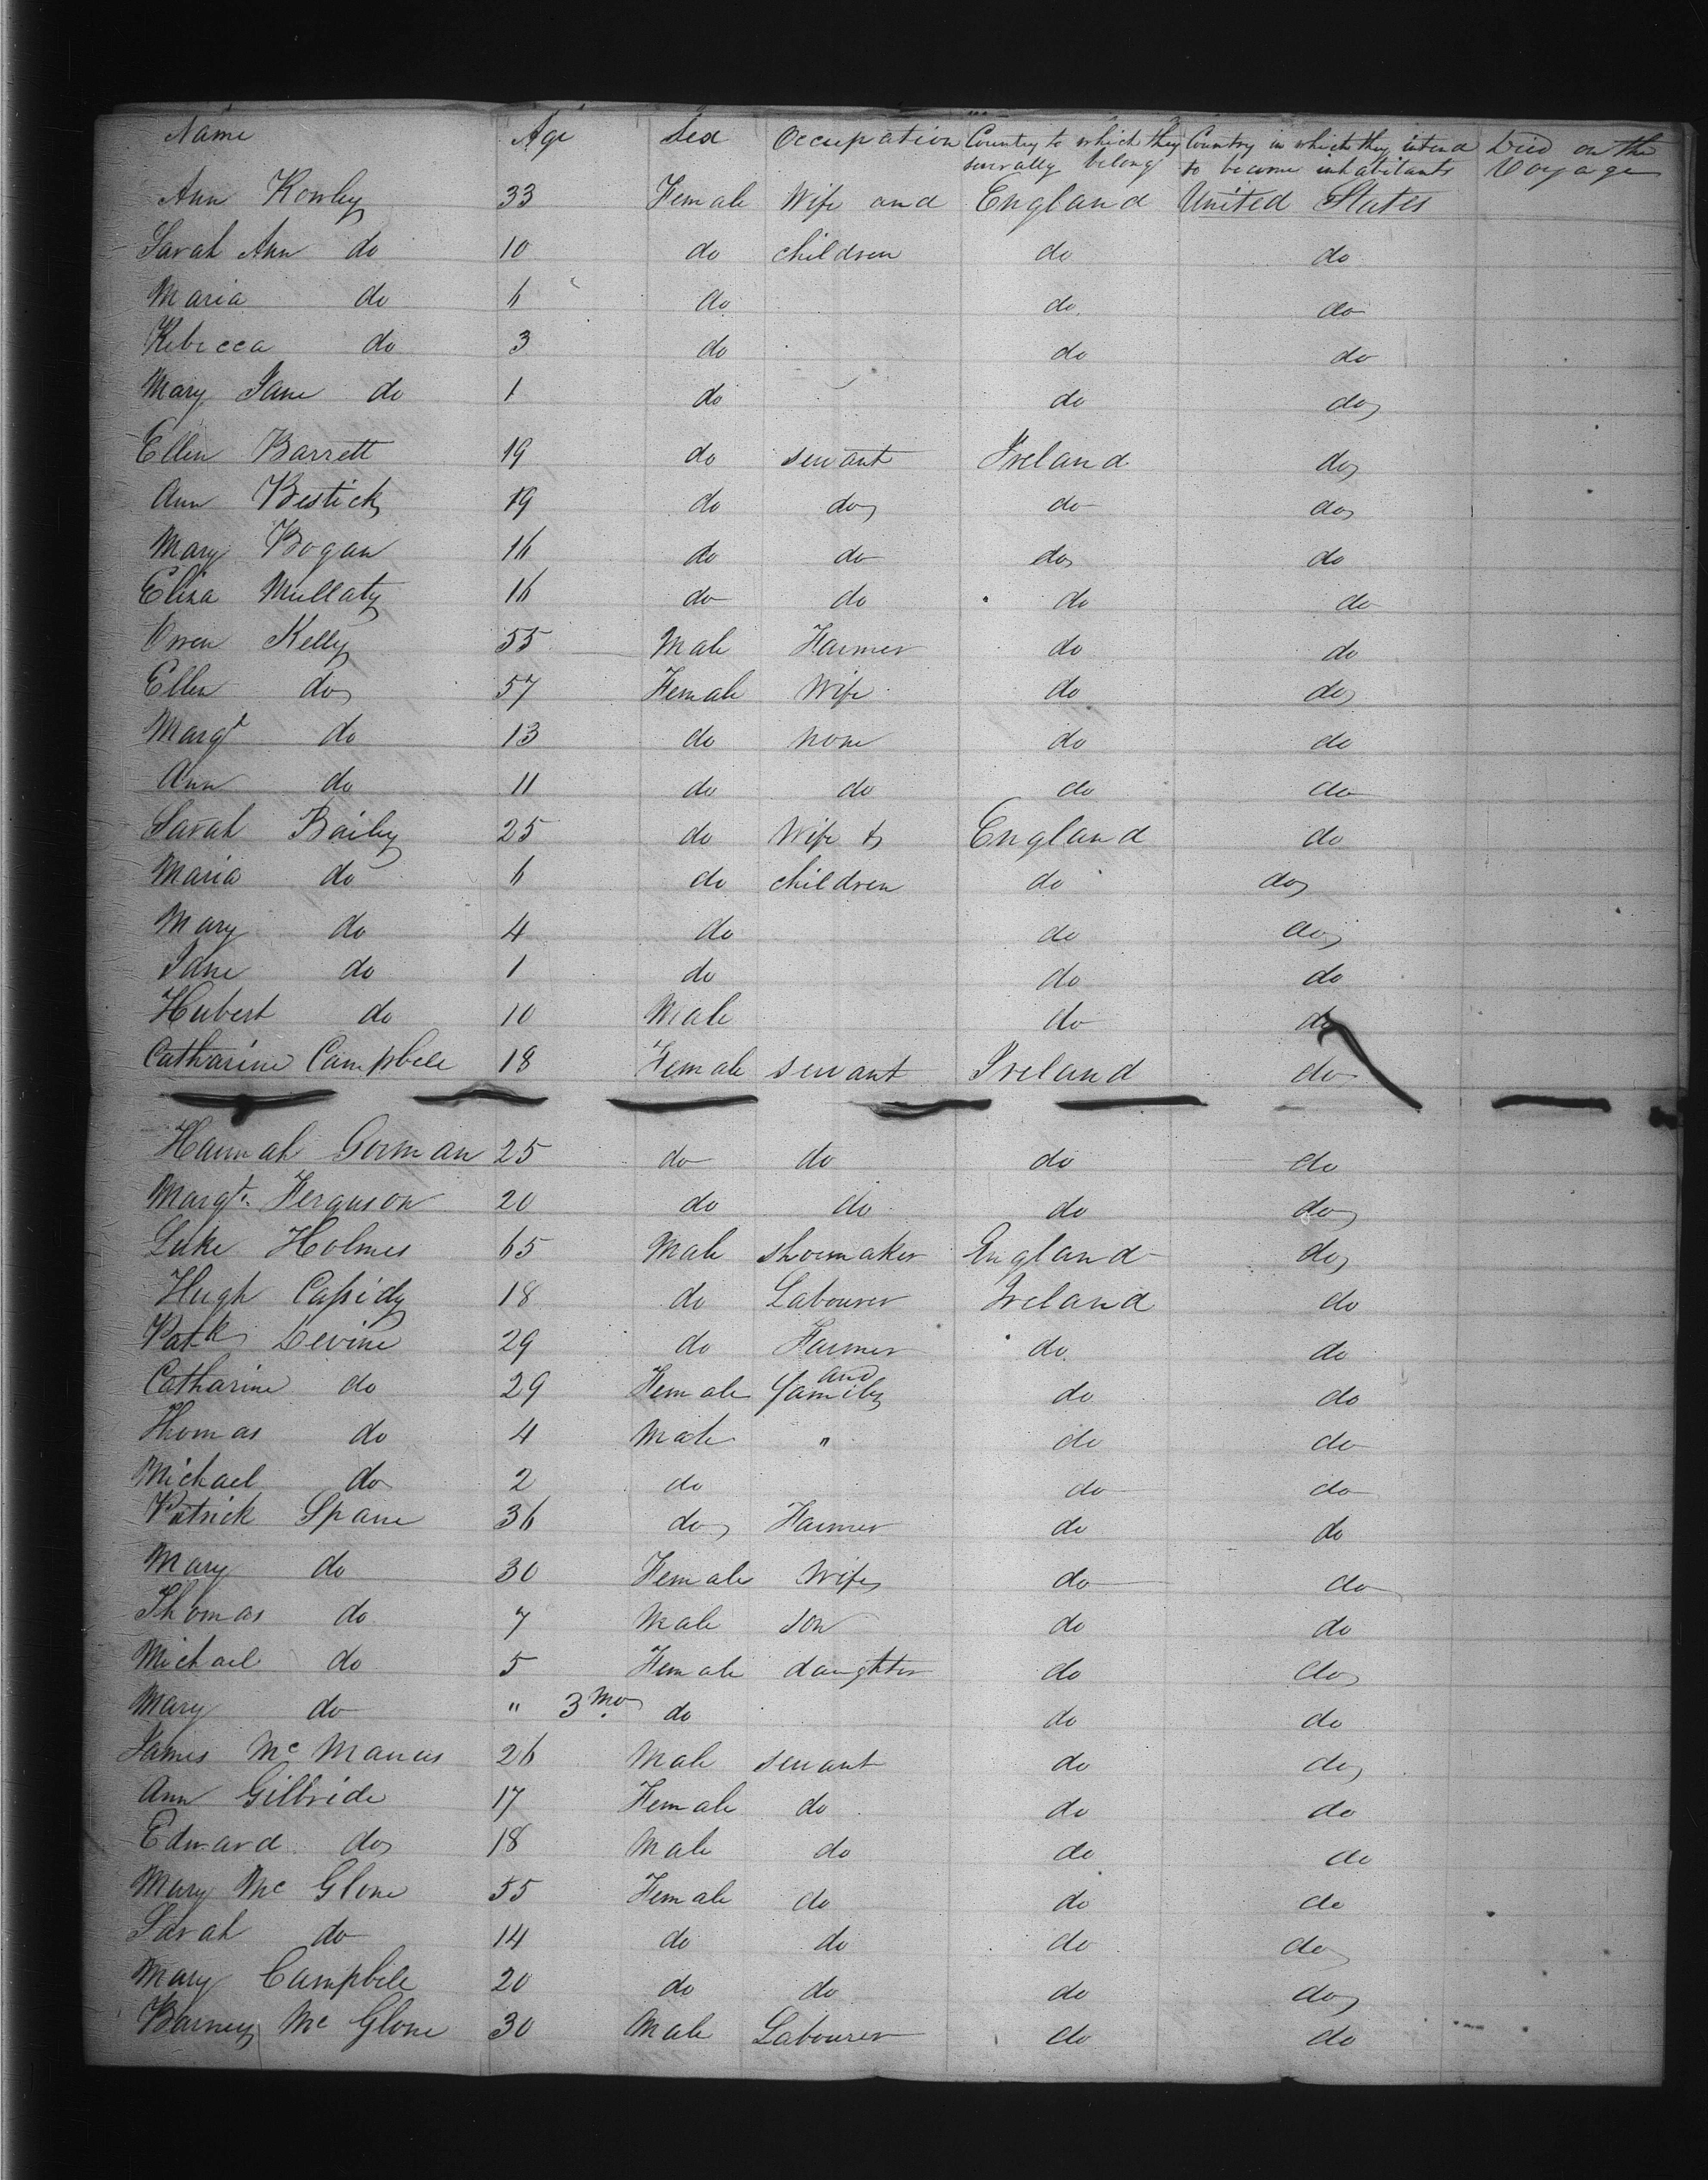 Name Age Sex Occupation Country to which they severally belong Country in which they intend to become inhabitants Died on the Voyage
Ann Rowley 33 Female Wife and England United States
Sarah Ann do 10 do children do do
Maria do 6 do do do
Rebecca do 3 do do do
Mary Jane do 1 do do do
Ellen Barrett 19 do servant Ireland do
Ann Bestick 19 do do do do
Mary Bogan 16 do do do do
Eliza Mullaty 16 do do do do
Owen Kelly 55 Male Farmer do do
Ellen do 57 Female Wife do do
Margt do 13 do none do do
Ann do 11 do do do do
Sarah Baily 25 do Wife & England do
Maria do 6 do children do do
Mary do 4 do do do
Jane do 1 do do do
Hubert do 10 Male do do
Catharine Campbell 18 Female servant Ireland do
Hannah Gorman 25 do do do do
Margt. Ferguson 20 do do do do
Luke Holmes 65 Male shoemaker England do
Hugh Cassidy 18 do Labourer Ireland do
Patk Devine 29 do Farmer do do
Catharine do 29 Female and family do do
Thomas do 4 Male " do do
Michael do 2 do do do
Patrick Spane 36 do Farmer do do
Mary do 30 Female Wife do do
Thomas do 7 Male son do do
Michael do 5 Female daughter do do
Mary do " 3 mo do do do
James Mc Manus 26 Male servant do do
Ann Gilbride 17 Female do do do
Edward do 18 Male do do do
Mary Mc Glone 55 Female do do do
Sarah do 14 do do do do
Mary Campbell 20 do do do do
Barney Mc Glone 30 Male Labourer do do